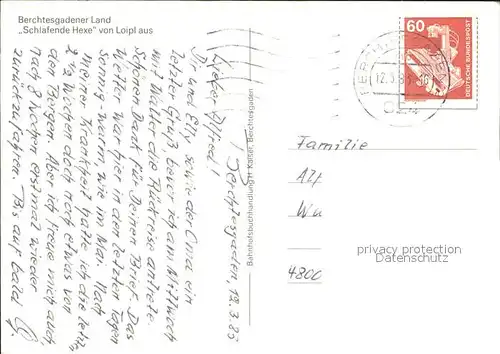 Berchtesgadener Land
„Schlafende Hexe" von Loipl aus
Berchtesgaden, 12.3.85
Lieber Alfred!
Dir und Elly sowie der Oma ein
letzter Gruß, bevor ich am Mittwoch
mit Walter die Rückreise antrete.
Schönen Dank für Deinen Brief. Das
Wetter war hier in den letzten Tagen
sonnig warm, wie im Mai. Nach
meiner Krankheit hatte ich die letzt.
2 ½ Wochen doch noch etwas von
den Bergen. Aber ich freue mich auch,
nach 8 Wochen erstmal wieder
zurückzufahren. Bis auf bald
Bahnhofsbuchhandlung H. Karter, Berchtesgaden
60
DEUTSCHE BUNDESPOST
12.3.85-16
Familie
Alf
Wu
4800
© privatsammler
PERSONAL PROTECTION